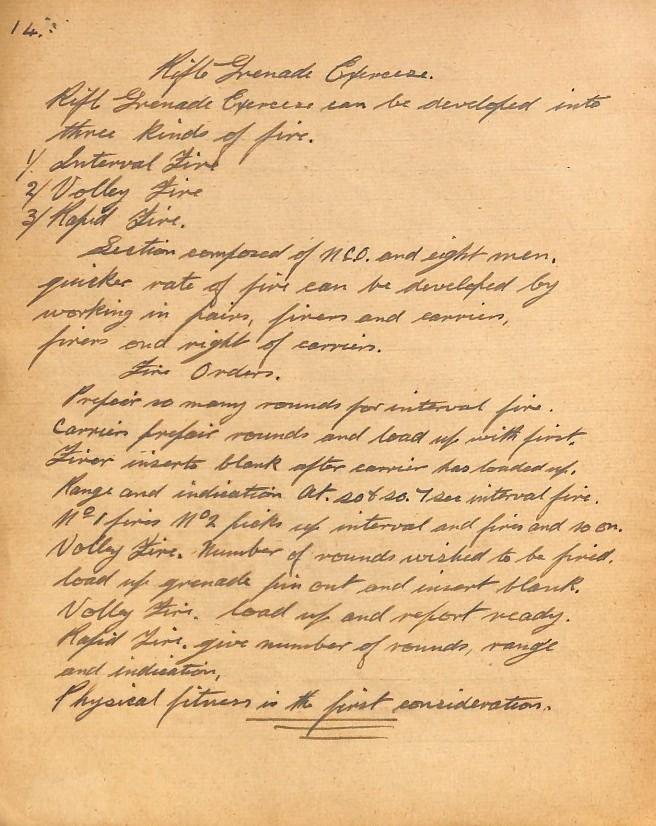 14.
Rifle Grenade Exercise.
Rifle Grenade Exercise can be developed into
three kinds of fire.
1/ Interval Fire
2/ Volley Fire
3/ Rapid Fire.
Section composed of N.C.O. and eight men.
quicker rate of fire can be developed by
working in pairs, firers and carriers,
firers on right of carriers.
Fire Orders.
Prepair so many rounds for interval fire.
Carriers prepair rounds and load up with first.
Firer inserts blank after carrier has loaded up.
Range and indication At. so & so. 7 sec interval fire.
No 1 fires No 2 picks up interval and fires and so on.
Volley Fire. Number of rounds wished to be fired.
load up grenade pin out and insert blank.
Volley Fire. load up and report ready.
Rapid Fire. give number of rounds, range
and indication,
Physical fitness is the first consideration.